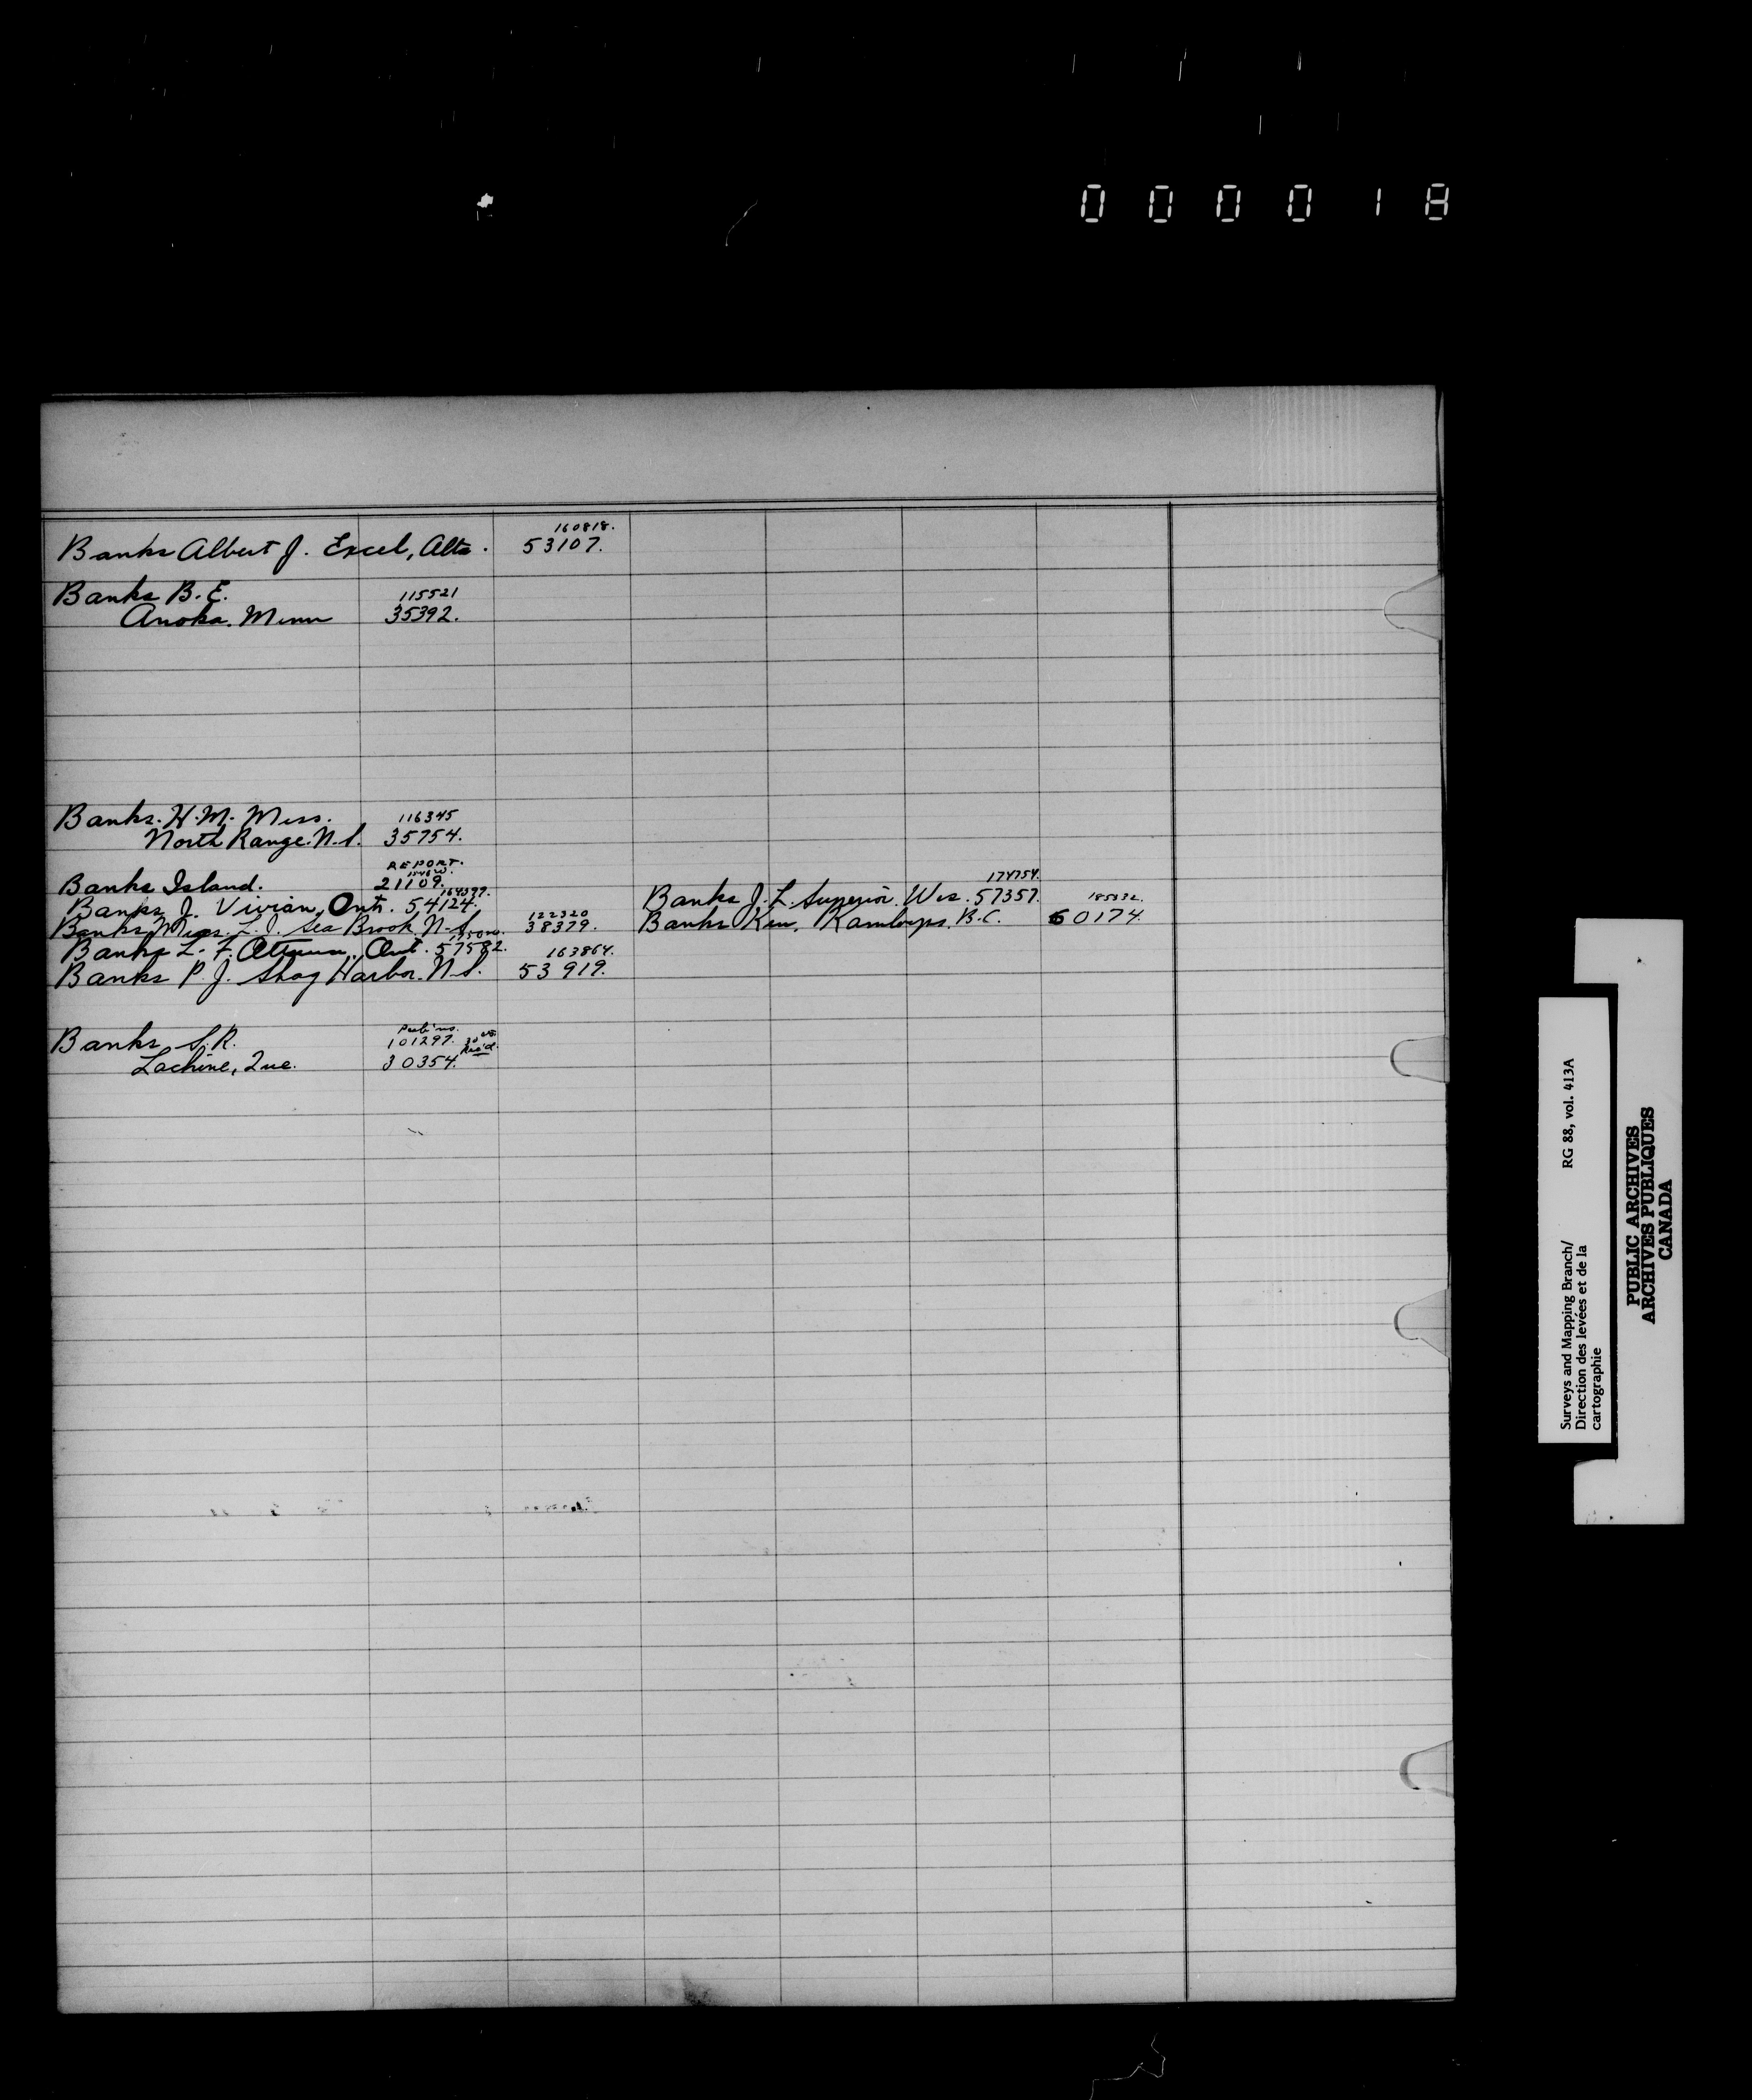 000018
160818.
Banks Albert J. Excel, Alta. 53107.
Banks B. E. 115521
Anoka. Minn 35392.
Banks. H. M. Miss. 116345
North Range. N.S. 35754.
REPORT.
Banks Island. 21109.
174754.
Banks J. Vivian, Ont. 54124. 164397.
Banks J. L. Superior. Wis. 57357. 185832.
Banks Miss. L. J. Sea Brook. N.S. 38379. 122320
Banks Ken, Kamloops. B.C. 60174.
Banks L. F. Ottawa, Ont. 57582.
163864.
Banks P. J. Shag Harbor. N.S. 53919.
Banks S. R. 101297.
Lachine, Que. 30354. Rec'd.
Surveys and Mapping Branch/ RG 88, vol. 413A
Direction des levées et de la
cartographie
PUBLIC ARCHIVES
ARCHIVES PUBLIQUES
CANADA